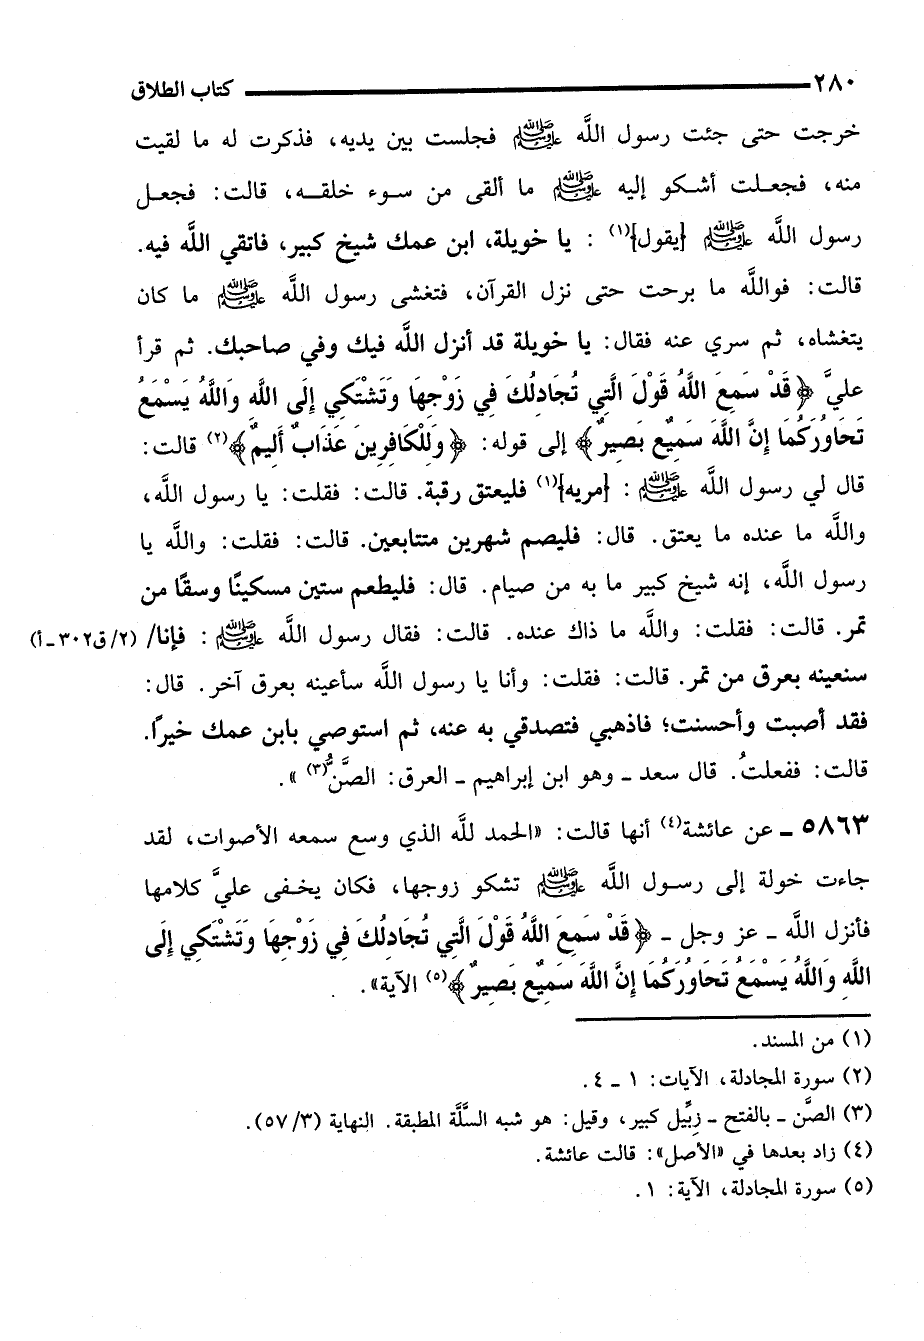 ٢٨٠ كتاب الطلاق
خرجت حتى جئت رسول اللَّه ﷺ فجلست بين يديه، فذكرت له ما لقيت
منه، فجعلت أشكو إليه ﷺ ما ألقى من سوء خلقه، قالت: فجعل
رسول اللَّه ﷺ [يقول](١) : يا خويلة، ابن عمك شيخ كبير، فاتقي اللَّه فيه.
قالت: فواللَّه ما برحت حتى نزل القرآن، فتغشى رسول اللَّه ﷺ ما كان
يتغشاه، ثم سري عنه فقال: يا خويلة قد أنزل اللَّه فيك وفي صاحبك. ثم قرأ
عليَّ ﴿قَدْ سَمِعَ اللَّهُ قَوْلَ الَّتِي تُجَادِلُكَ فِي زَوْجِهَا وَتَشْتَكِي إِلَى اللَّهِ وَاللَّهُ يَسْمَعُ
تَحَاوُرَكُمَا إِنَّ اللَّهَ سَمِيعٌ بَصِيرٌ﴾ إلى قوله: ﴿وَلِلْكَافِرِينَ عَذَابٌ أَلِيمٌ﴾(٢) قالت:
قال لي رسول اللَّه ﷺ : [مريه](١) فليعتق رقبة. قالت: فقلت: يا رسول اللَّه،
واللَّه ما عنده ما يعتق. قال: فليصم شهرين متتابعين. قالت: فقلت: واللَّه يا
رسول اللَّه، إنه شيخ كبير ما به من صيام. قال: فليطعم ستين مسكينًا وسقًا من
تمر. قالت: فقلت: واللَّه ما ذاك عنده. قالت: فقال رسول اللَّه ﷺ : فإنا/ (٢/ق٣٠٢-أ)
سنعينه بعرق من تمر. قالت: فقلت: وأنا يا رسول اللَّه سأعينه بعرق آخر. قال:
فقد أصبت وأحسنت؛ فاذهبي فتصدقي به عنه، ثم استوصي بابن عمك خيرًا.
قالت: ففعلتُ. قال سعد - وهو ابن إبراهيم - العرق: الصَّنُّ(٣) ».
٥٨٦٣ - عن عائشة(٤) أنها قالت: «الحمد للَّه الذي وسع سمعه الأصوات، لقد
جاءت خولة إلى رسول اللَّه ﷺ تشكو زوجها، فكان يخفى عليَّ كلامها
فأنزل اللَّه - عز وجل - ﴿قَدْ سَمِعَ اللَّهُ قَوْلَ الَّتِي تُجَادِلُكَ فِي زَوْجِهَا وَتَشْتَكِي إِلَى
اللَّهِ وَاللَّهُ يَسْمَعُ تَحَاوُرَكُمَا إِنَّ اللَّهَ سَمِيعٌ بَصِيرٌ﴾(٥) الآية».
(١) من المسند.
(٢) سورة المجادلة، الآيات: ١ - ٤.
(٣) الصَّن - بالفتح - زِبِّيل كبير، وقيل: هو شبه السَّلَّة المطبقة. النهاية (٥٧/٣).
(٤) زاد بعدها في «الأصل»: قالت عائشة.
(٥) سورة المجادلة، الآية: ١.